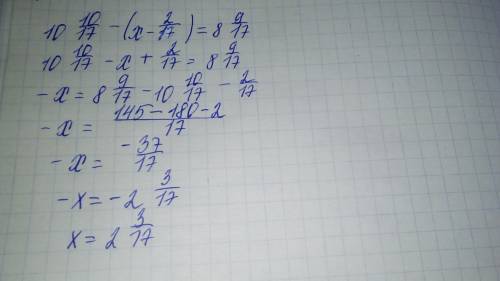 10 10/17 - (x - 2/17) = 8 9/17
10 10/17 - x + 2/17 = 8 9/17
- x = 8 9/17 - 10 10/17 - 2/17
- x = (145 - 180 - 2)/17
- x = -37/17
- x = - 2 3/17
x = 2 3/17